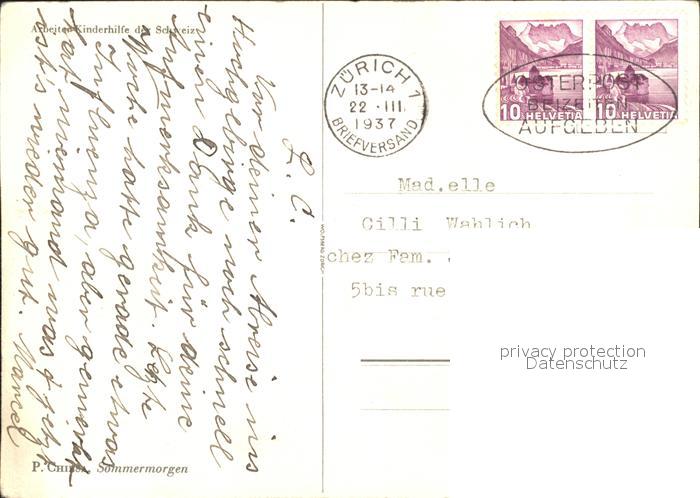 Arbeiter-Kinderhilfe der Schweiz
L. C.
Vor deiner Abreise ins
Hochgebirge noch schnell
einen Dank für deine
Aufmerksamkeit. Letzte
Woche hatte gerade etwas
Influenza, aber gemerkt
hat niemand was & jetzt
ist's wieder gut. Marcel
P. CHIESA, Sommermorgen
WOLFSBERG ZÜRICH
ZÜRICH 1
13-14
22.III.
1937
BRIEFVERSAND
OSTERPOST
BEIZEITEN
AUFGEBEN
10 HELVETIA
10 HELVETIA
Mad.elle
Cilli Wahlich
chez Fam.
5bis rue
privacy protection
Datenschutz